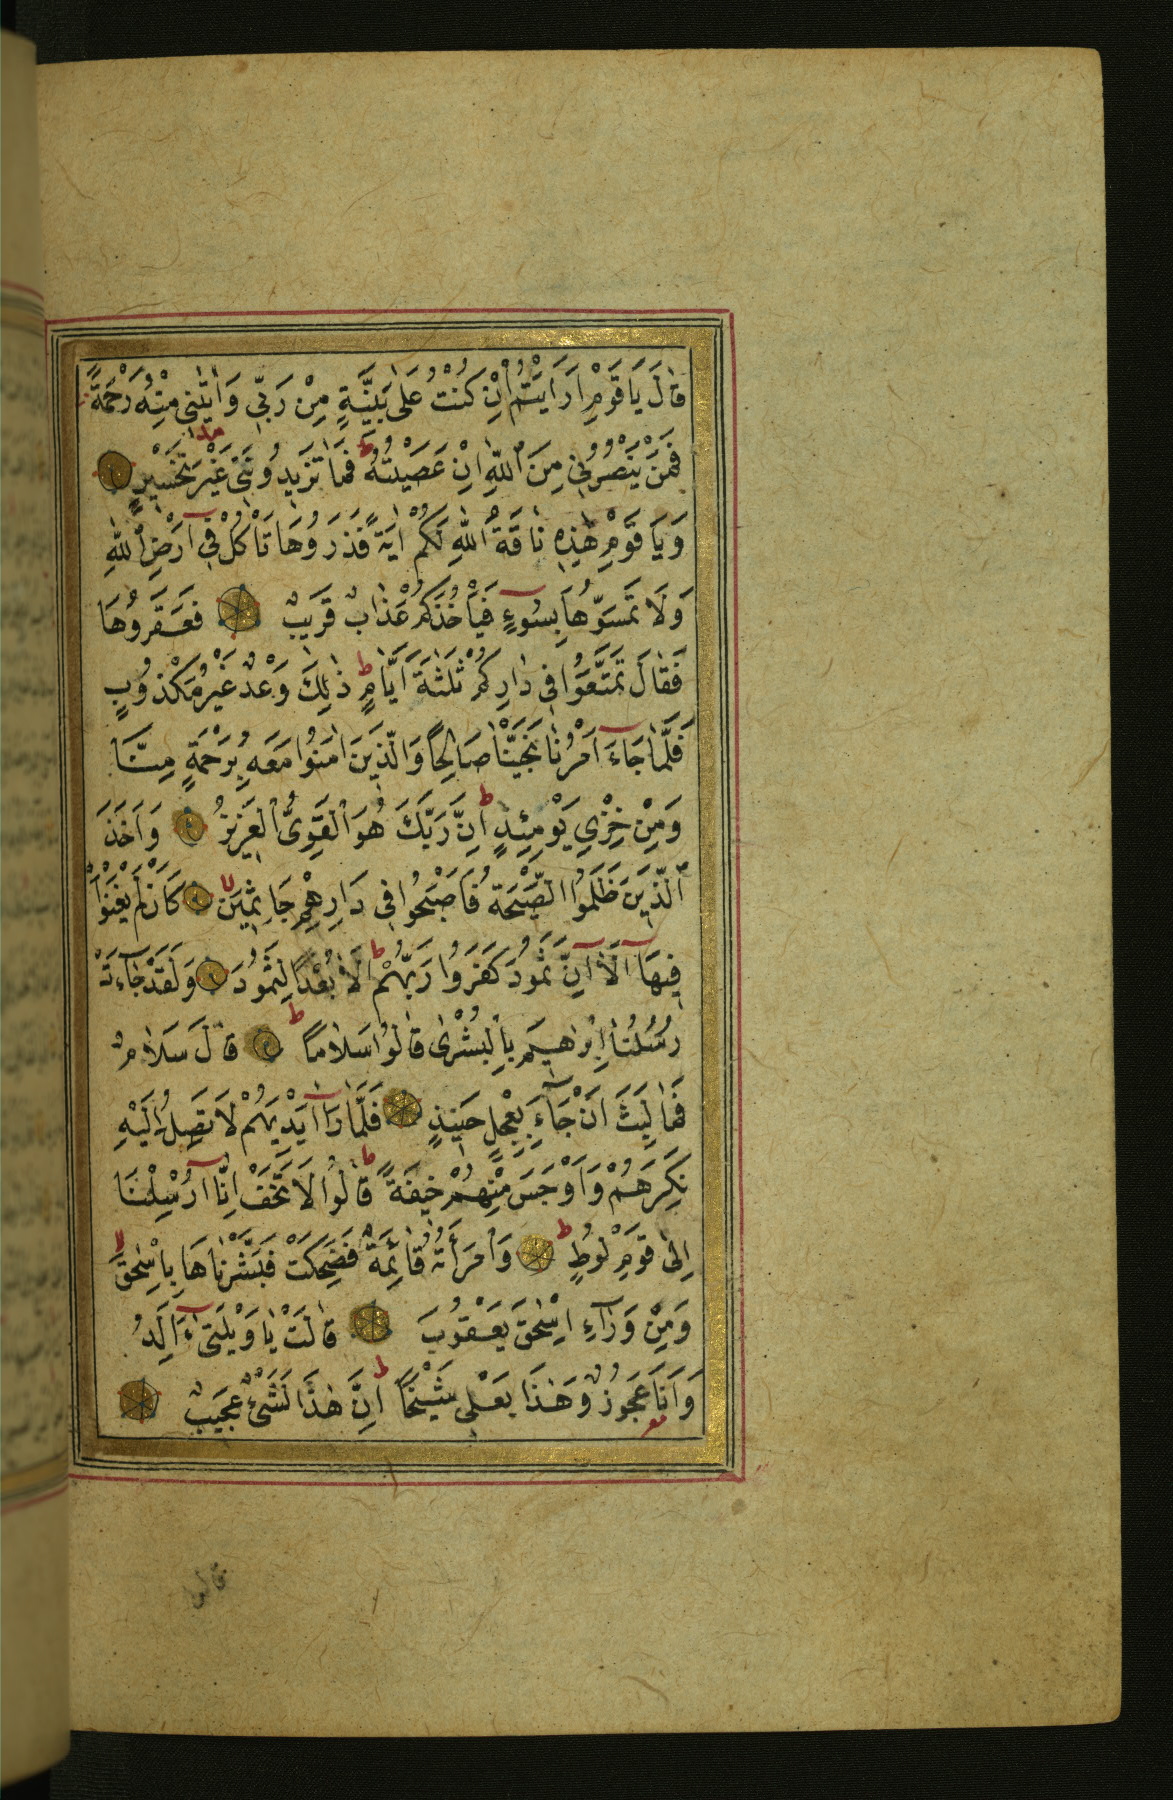 قَالَ يَا قَوْمِ اَرَاَيْتُمْ اِنْ كُنْتُ عَلٰى بَيِّنَةٍ مِنْ رَبِّى وَاٰتٰينِى مِنْهُ رَحْمَةً
فَمَنْ يَنْصُرُنِى مِنَ اللّٰهِ اِنْ عَصَيْتُهُ ط فَمَا تَزِيدُونَنِى غَيْرَ تَخْسِيرٍ
وَيَا قَوْمِ هٰذِهِ نَاقَةُ اللّٰهِ لَكُمْ اٰيَةً فَذَرُوهَا تَاْكُلْ فِى اَرْضِ اللّٰهِ
وَلَا تَمَسُّوهَا بِسُوءٍ فَيَاْخُذَكُمْ عَذَابٌ قَرِيبٌ فَعَقَرُوهَا
فَقَالَ تَمَتَّعُوا فِى دَارِكُمْ ثَلٰثَةَ اَيَّامٍ ط ذٰلِكَ وَعْدٌ غَيْرُ مَكْذُوبٍ
فَلَمَّا جَاءَ اَمْرُنَا نَجَّيْنَا صَالِحًا وَالَّذِينَ اٰمَنُوا مَعَهُ بِرَحْمَةٍ مِنَّا
وَمِنْ خِزْىِ يَوْمِئِذٍ ط اِنَّ رَبَّكَ هُوَ الْقَوِىُّ الْعَزِيزُ وَاَخَذَ
الَّذِينَ ظَلَمُوا الصَّيْحَةُ فَاَصْبَحُوا فِى دَارِهِمْ جَاثِمِينَ لا كَاَنْ لَمْ يَغْنَوْا
فِيهَا اَلَا اِنَّ ثَمُودَ كَفَرُوا رَبَّهُمْ ط اَلَا بُعْدًا لِثَمُودَ وَلَقَدْ جَاءَتْ
رُسُلُنَا اِبْرٰهِيمَ بِالْبُشْرٰى قَالُوا سَلَامًا ط قَالَ سَلَامٌ
فَمَا لَبِثَ اَنْ جَاءَ بِعِجْلٍ حَنِيذٍ فَلَمَّا رَاٰ اَيْدِيَهُمْ لَا تَصِلُ اِلَيْهِ
نَكِرَهُمْ وَاَوْجَسَ مِنْهُمْ خِيفَةً ط قَالُوا لَا تَخَفْ اِنَّا اُرْسِلْنَا
اِلٰى قَوْمِ لُوطٍ ط وَامْرَأَتُهُ قَائِمَةٌ فَضَحِكَتْ فَبَشَّرْنَاهَا بِاِسْحٰقَ لا
وَمِنْ وَرَاءِ اِسْحٰقَ يَعْقُوبَ قَالَتْ يَا وَيْلَتٰى ءَاَلِدُ
وَاَنَا عَجُوزٌ وَهٰذَا بَعْلِى شَيْخًا ط اِنَّ هٰذَا لَشَىْءٌ عَجِيبٌ
قالوا